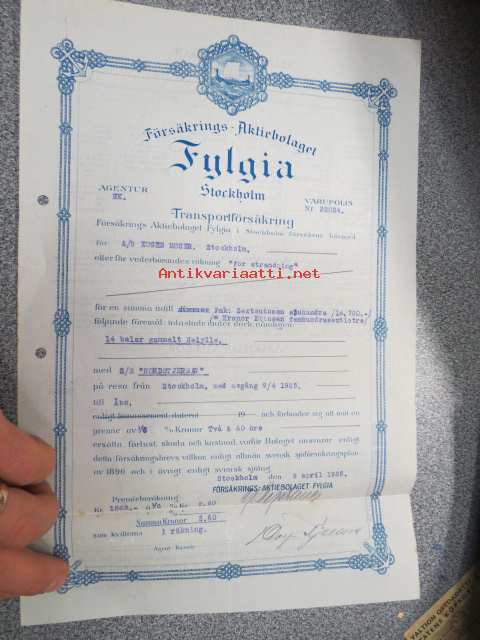 Försäkrings-Aktiebolaget
Fylgia
Stockholm
AGENTUR
HK.
VARUPOLIS
Nr
Transportförsäkring
Försäkrings Aktiebolaget Fylgia i Stockholm försäkrar härmed
för A/B MOSES MOSER. Stockholm.
eller för vederbörandes räkning "för strandning"
Antikvariaatti.net
för en summa utaf Fmk: Sextontusen sjuhundra /16,700.-/
följande föremål
14 balar gammalt Helylle.
med S/S "NORDSTJERNAN"
på resa från Stockholm, med avgång 9/4 1925.
till Åbo.
enligt konnossement, daterat 19 och förbinder sig att mot en
premie av % Kronor Två & 60 öre
ersätta förlust, skada och kostnad, varför Bolaget ansvarar enligt
detta försäkringsbrevs villkor, enligt allmän svensk sjöförsäkringsplan
av 1896 och i övrigt enligt svensk sjölag.
Stockholm den april 1925.
FÖRSÄKRINGS-AKTIEBOLAGET FYLGIA
Premieberäkning
Kr.
Summa Kronor 2.60
som kvitteras i räkning.
Agent
VALTION